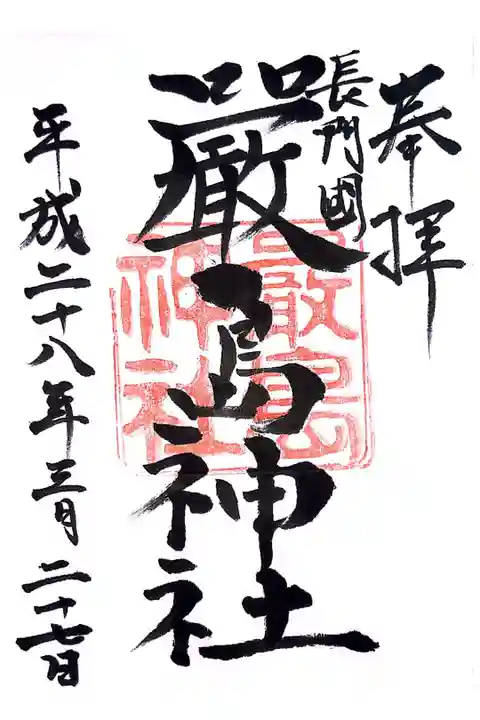 奉拝
長門國
嚴島神社
嚴島神社
平成二十八年三月二十七日